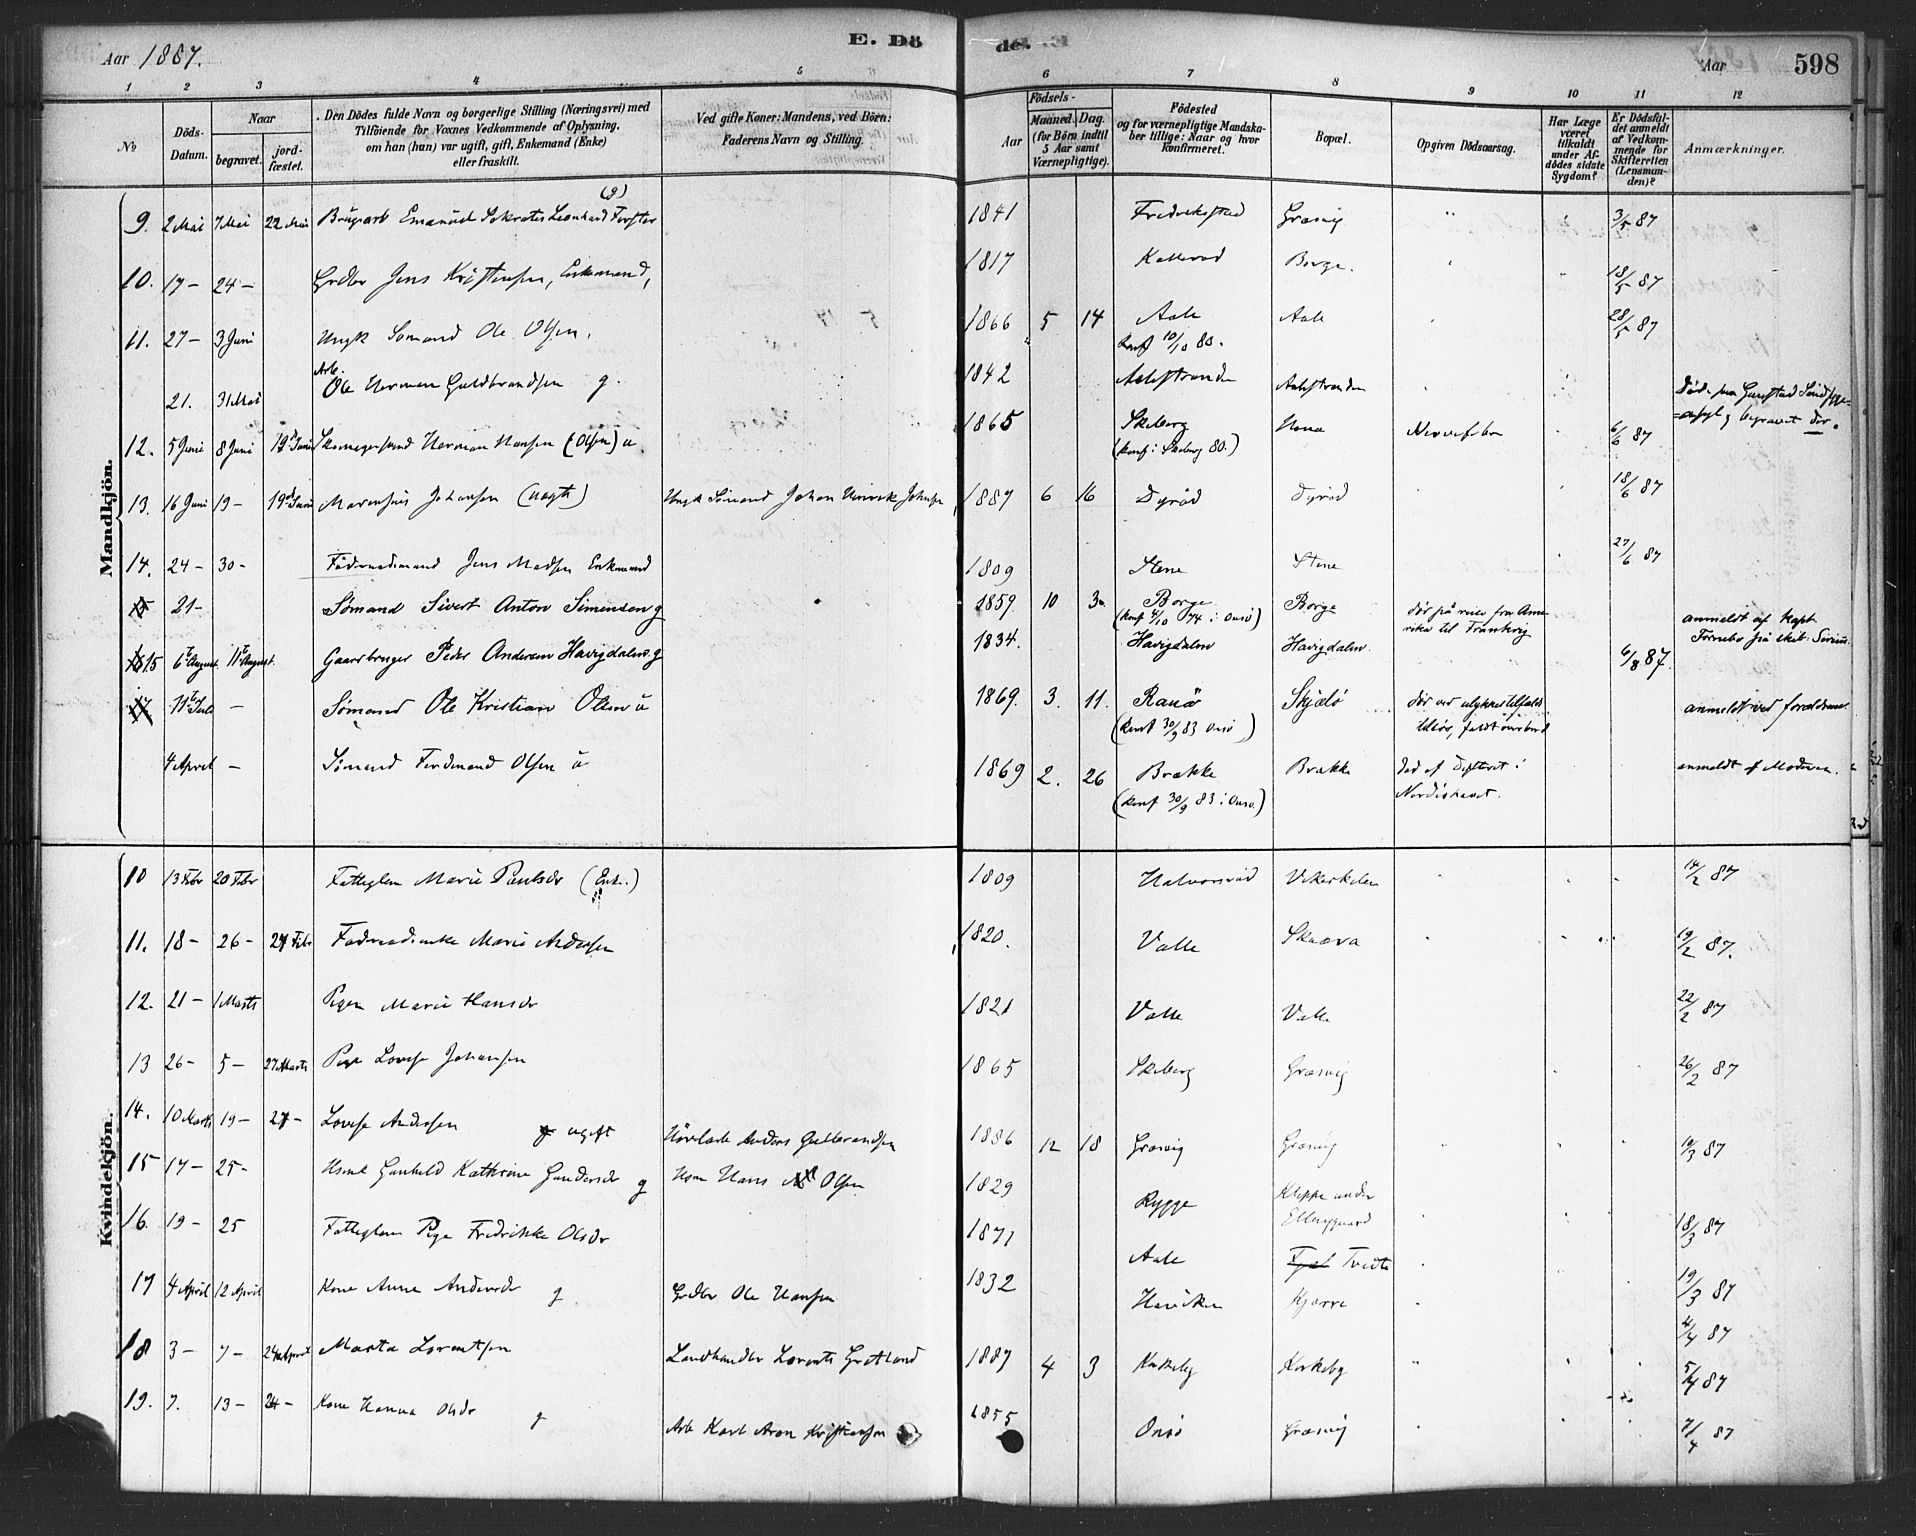 Aar 1887.
E. Dö
de. 
Aar
598
1 2 3 4 5 6 7 8 9 10 11 12
No
Döds-Datum.
Naar
begravet.
jord-fæstet.
Den Dödes fulde Navn og borgerlige Stilling (Næringsvei) med
Tilföiende for Voxnes Vedkommende af Oplysning,
om han (hun) var ugift, gift, Enkemand (Enke)
eller fraskilt.
Ved gifte Koner: Mandens, ved Börn:
Faderens Navn og Stilling.
Födsels-
Aar
Maaned. Dag.
(for Börn indtil
5 Aar samt
Værnepligtige).
Födested
og for værnepligtige Mandska-
ber tillige: Naar og hvor
konfirmeret.
Bopæl.
Opgiven Dödsaarsag.
Har Læge
været
tilkaldt
under Af-
dödes sidste
Sygdom?
Er Dödsfal-
det anmeldt
af Vedkom-
mende for
Skifteretten
(Lensman-
den)?
Anmærkninger.
Mandkjön.
(g)
9. 2 Mai 7 Mai 22 Mai Brugsarb Emanuel Sokrates Leonhard Forster 1841 Fredrikstad Græsvig " 3/5 87
10. 17 – 24 – Grdbr Jens Kristensen, Enkemand, 1817 Kallerød Borge. 18/5 87
11. 27 – 3 Juni Ungk Sømand Ole Olsen. 1866 5 14 Aale Aale 28/5 87
konf 10/10 80.
Arb.
21. 31 Mai Ole Herman Guldbrandsen g. 1842 Aalestranden Aalestranden
begravet der.
12. 5 Juni 8 Juni 19 Juni Herman Hansen (Olsen) u 1865 Skeberg Huna Nervefeber 6/6 87
(konf i Skeberg 80.)
13. 16 Juni 19 – 19 Juni Johansen (uægte) Ungk Sømand Johan Henrik Johnsen 1887 6 16 Dyrød Dyrød 18/6 87
14. 24 – 30 – Föderaadsmand Jens Madsen Enkemand 1809 Stene Stene 27/6 87
15 21 – Sømand Sivert Anton Simensen g 1859. 10 30 Borge Borge dør på reise fra Ame-
rika til Frankrig
(konf 4/10 74 i Onsö)
anmeldt af Kapt.
15 6 August 11 August. Gaardbruger Peder Andersen Havigdalen g 1834. Havigdalen Havigdalen. 6/8 87.
17 11 Juli – Sømand Ole Kristian Olsen u 1869. 3. 11. Rauö Skjælö dör ved ulykkestilfælde
tilsös, faldt overbord anmeldt ved forældrene.
(konf 30/9 83 Onsö)
4 April – Sømand Ferdinand Olsen u 1869 2. 26 Brække Brække Død af Difteret i
Nordishavet. anmeldt af Moderen.
(konf 30/9 83 i Onsö.)
Kvindekjön.
10 13 Febr 20 Febr Fatteglem Marie Paulsdr (Enke.) 1809 Halvorsrød Vikerkilen 14/2 87
11. 18 – 26 – 27 Febr Föderaadsenke Marie Andersen 1820. Valle Skaara 19/2 87.
12. 21 – 1 Marts Pigen Marie Hansdr 1821 Valle Valle 22/2 87
13 26 – 5 – 27 Marts Pige Lovise Johansen 1865 Skeberg Græsvig 26/2 87
14. 10 Marts 19 – 27 – Lovise Andersen ugift Anders Gulbrandsen 1886 12 18 Græsvig Græsvig 10/3 87
15 17 – 25 – Hsmk Gunhild Kathrine Gundersdr g Hsm Hans Olsen 1829 Rygge Kleppe under
Ellengaard 18/3 87
16. 19 – 25 Fatteglem Pige Fredrikke Olsdr 1871 Aale Tvedte 19/3 87
17 4 April 12 April Kone Anne Andersdr g Grdbr Ole Hansen 1832 Haviken Kjærre 4/4 87
18 3 – 7 – 24 April Marta Lorentsen Landhandler Lorents Grötland 1887 4 3 Kirkeby Kirkeby " 5/4 87
19. 7. 13 – 24 – Kone Hanna Olsdr g Arb Karl Aron Kristiansen 1855 Onsö Græsvig 7/4 87